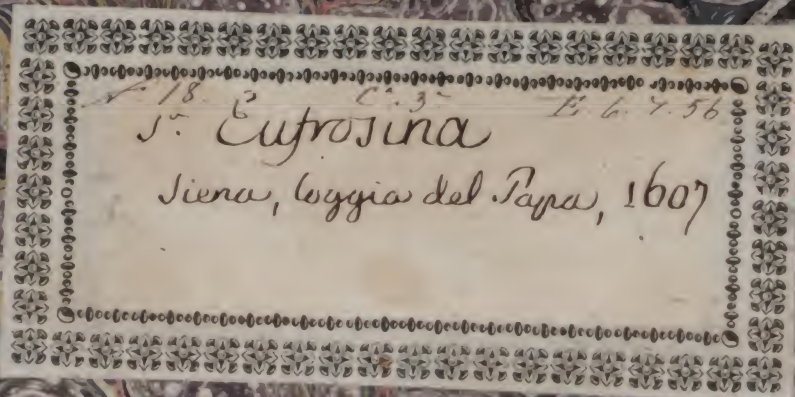 N. 18. C. 3 E. 6. 7. 56
S. Eufrosina
Siena, loggia del Papa, 1607